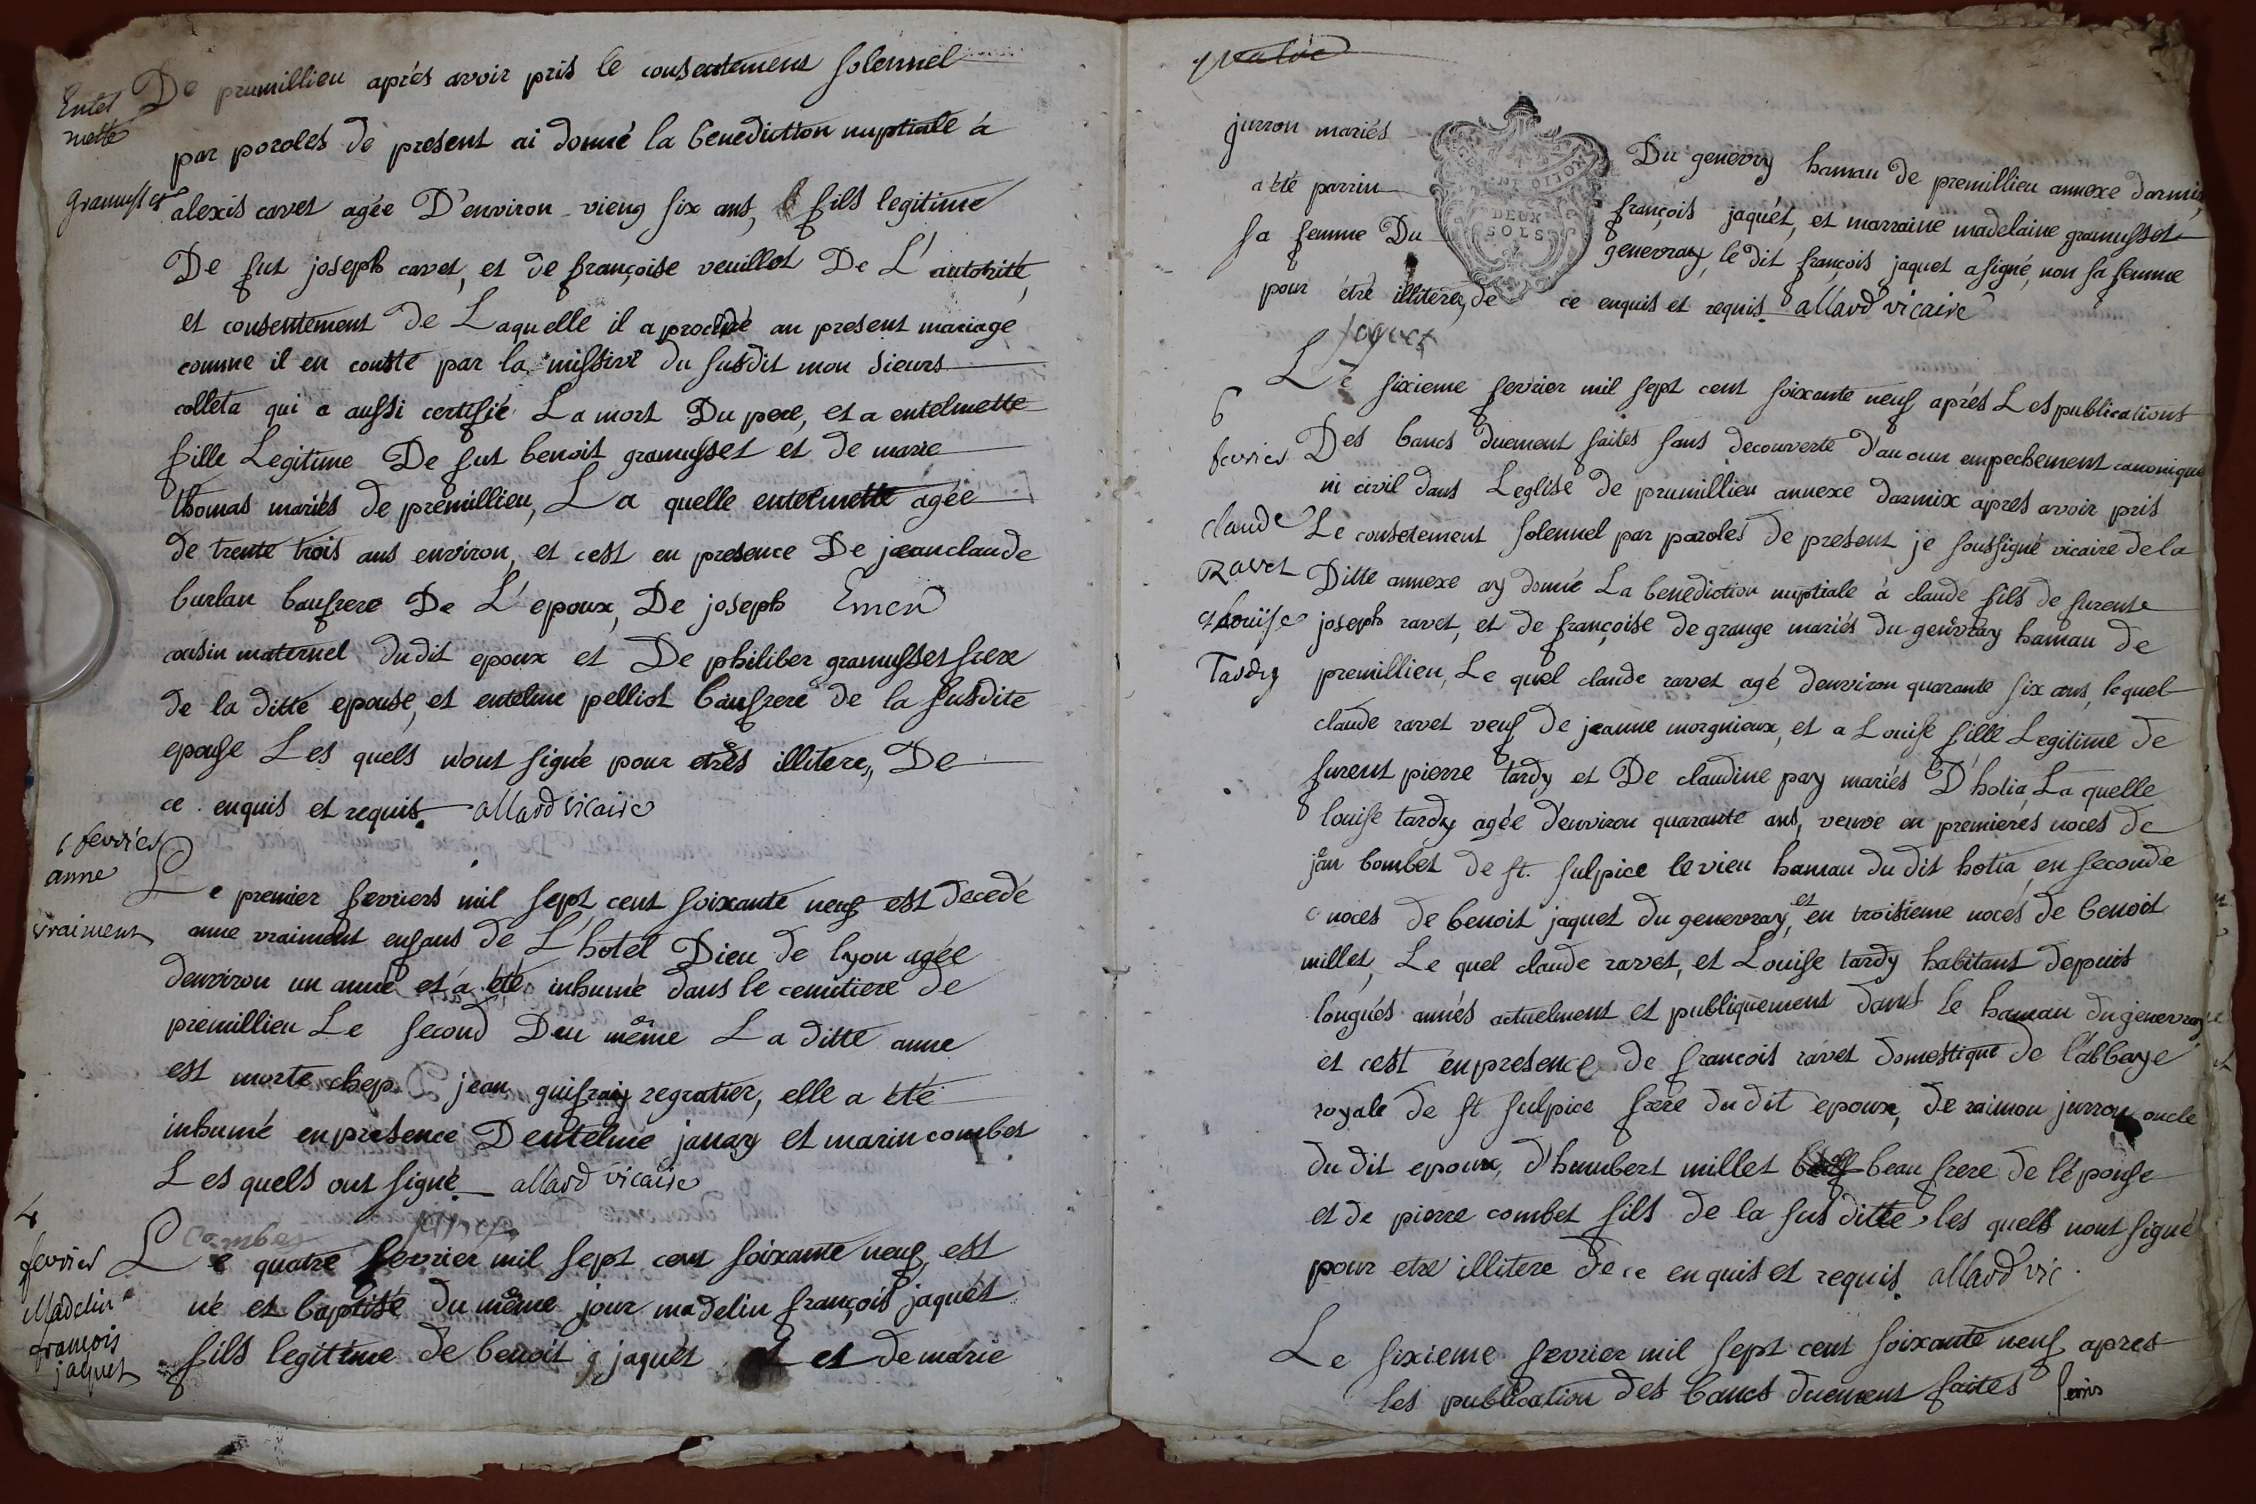 De prumillieu aprés avoir pris le consentement solennel
Entel
mette
par paroles de present ai donné la benediction nuptiale à
gramusset
alexis cavet agée D'environ vieng six ans, fils legitime
De fut joseph cavet, et de françoise veuillet De L'autorité,
et consentement de Laquelle il a procedé au present mariage
comme il en conste par la missive du susdit mon sieurs
colleta qui a aussi certifié La mort Du pere, et a entelmette
fille Legitime De fut benoit gramusset et de marie
thomas mariés de prémillieu, La quelle entelmette agée
de trente trois ans environ, et cest en presence De jeanclaude
burlan baufrere De L'epoux, De joseph Emen
cousin maternel dudit epoux et De philiber gramusset frere
de la ditte epouse, et entelme pelliot baufrere de la susdite
epouse Les quels n'ont signé pour etrés illitere, De
ce enquis et requis allard vicaire
1 fevrier
anne
vraiment
Le premier fevriers mil sept cent soixante neuf est decedé
anne vraiment enfans de L'hotel Dieu de lyon agée
denviron un anné et á été inhumé dans le cemitiere de
premillieu Le second Deu même La ditte anne
est morte chep jean guifray regratier, elle a été
inhumé en presence Dentelme janary et marin combet
Les quels ont signé allard vicaire
Combet
4
fevrier
Madelin
françois
jaquet
Le quatre fevrier mil sept cent soixante neuf, est
né et baptisé du même jour madelin françois jaquét
fils legitime de benoit jaquét et de marie
jurron mariés
Du genevry hamau de premillieu annexe darmix,
a été parrin
françois jaquét, et marraine madelaine gramusset
DEUX
SOLS
sa femme Du
genevray, le dit françois jaquet a signé, non sa femme
pour étré illitere, de ce enquis et requis allard vicaire
Jaquet
Le sixieme fevrier mil sept cent soixante neuf aprés Les publications
6
fevrier
Des bancs duement faites sans decouverte d'aucun empechement canonique
ni civil dans Leglise de prumillieu annexe darmix apres avoir pris
claude
Ravet
et Louise
Tardy
Le consetement solennel par paroles de present je soussigné vicaire de la
Ditte annexe ay donné La benediction nuptiale à claude fils de furent
joseph ravet, et de françoise de grange mariés du genvray hamau de
premillieu, Le quel claude ravet agé denviron quarante six ans, lequel
claude ravet veuf de jeanne morgnieux, et a Louise fille Legitime de
furent pierre tardy et De claudine pay mariés D'hotia, La quelle
louise tardy agée d'environ quarante ans, veuve en premierés noces de
jean bombet de st. sulpice le vieu hamau du dit hotia, en seconde
noces de benoit jaquet du genevray, et en troisieme nocés de benoit
millet, Le quel claude ravet, et Louise tardy habitant depuis
longués annés actuelment et publiquement dans le hamau du genevray
et cest en presence de françois ravet domestique de l'abbaye
royale de st sulpice frere du dit epoux, de raimon jurron oncle
du dit epoux, d'humbert millet beau frere de l'épouse
et de pierre combet fils de la sus ditte, les quels nont signé
pour etre illitere de ce enquis et requis allard vic.
Le sixieme fevrier mil sept cent soixante neuf apres
les publication des bancs duement faites sans